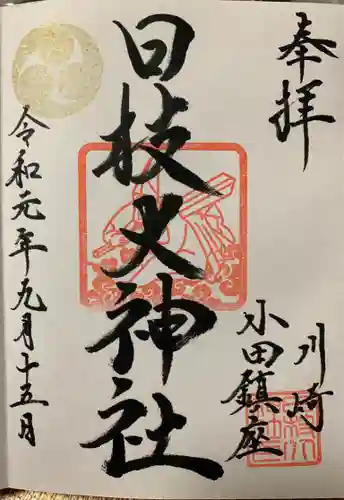 奉拝
川崎
小田鎮座
日枝大神社
令和元年九月十五日